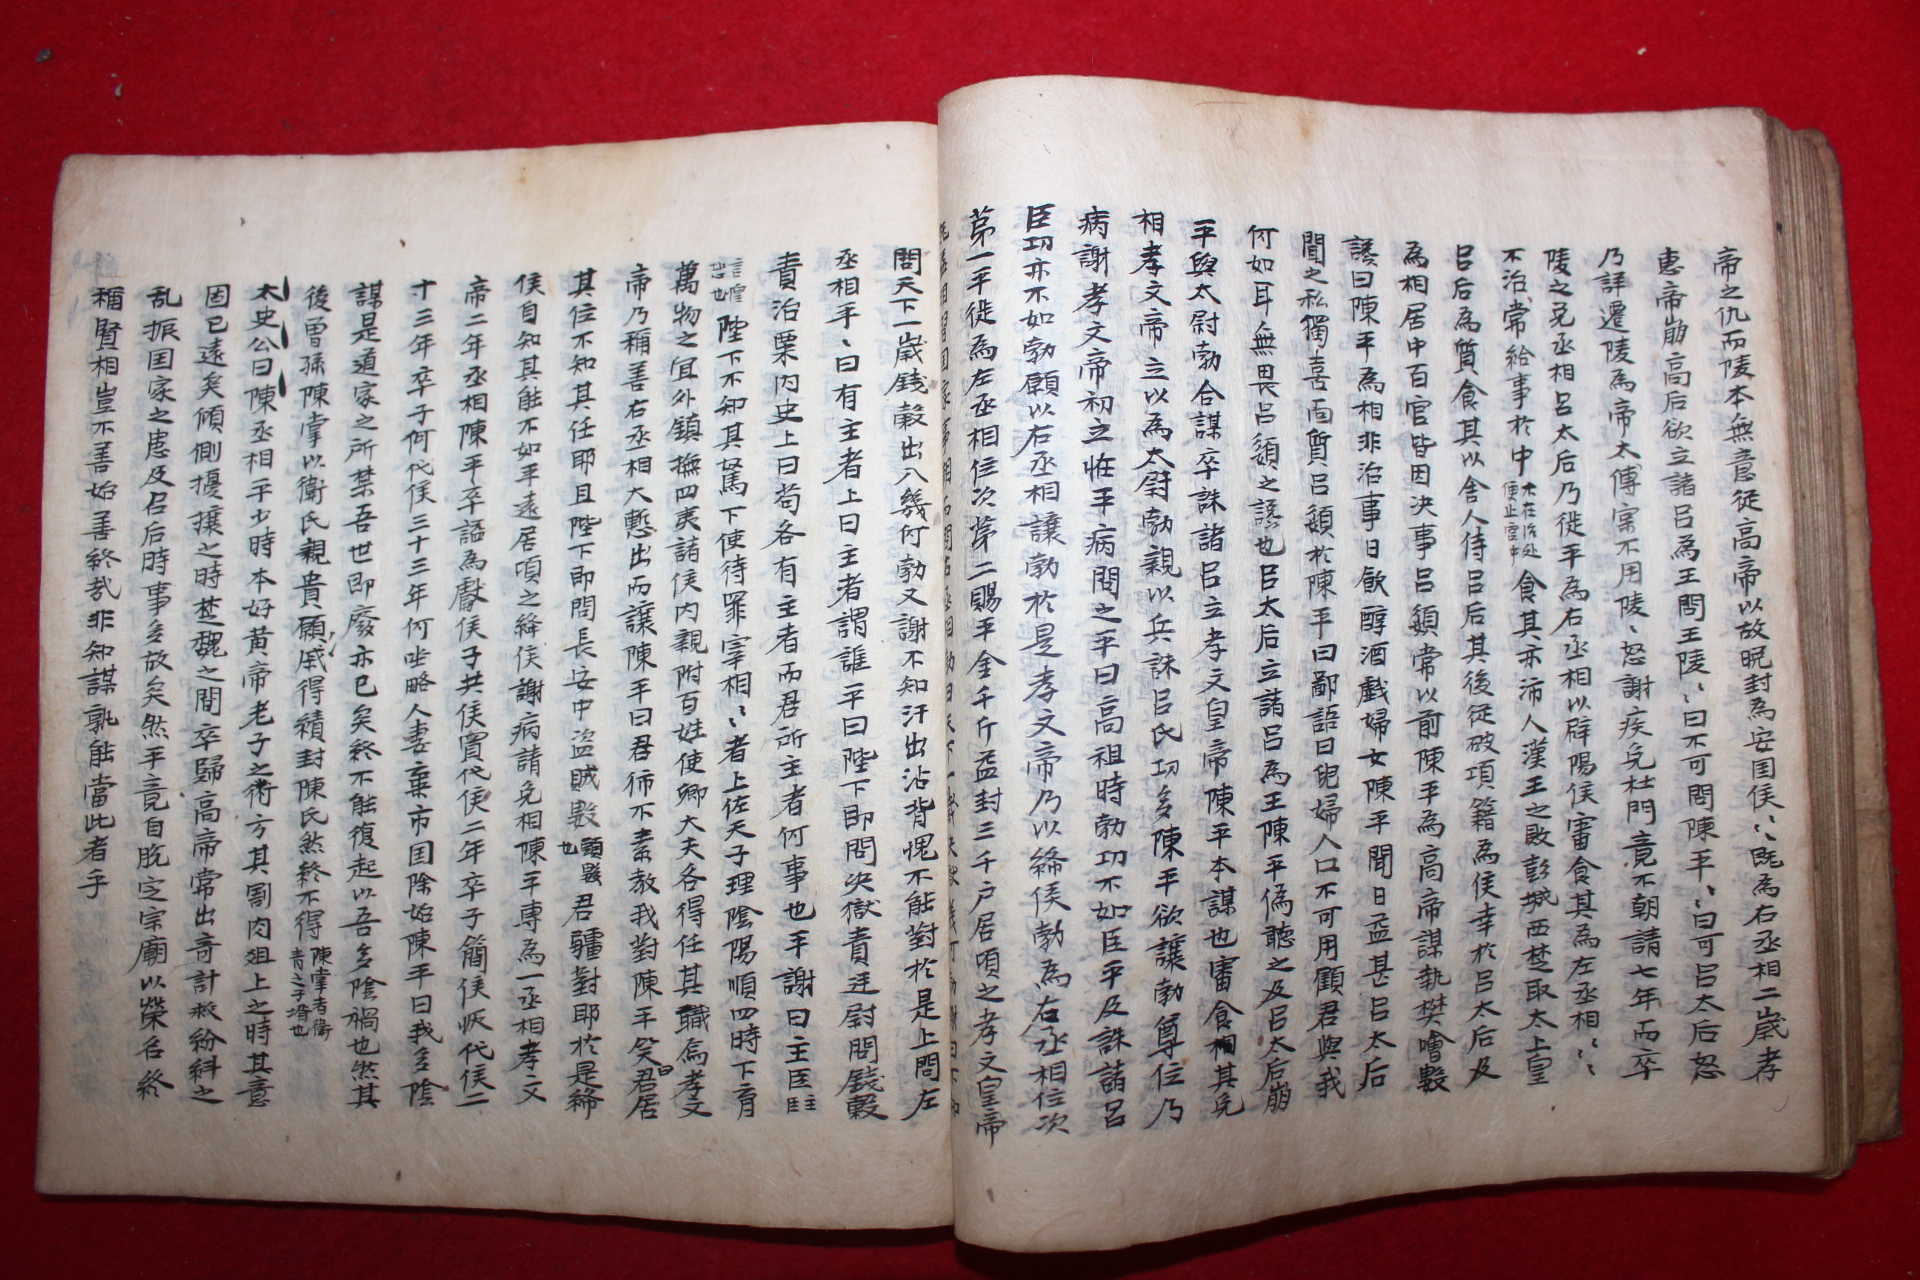 帝之仇而陵本無意從高帝以故晩封為安国侯〻既為右丞相二歲孝
惠帝崩高后欲立諸呂為王問王陵〻曰不可問陳平〻曰可呂太后怒
乃詳遷陵為帝太傅宲不用陵〻怒謝疾免杜門竟不朝請七年而卒
陵之免丞相呂太后乃徙平為右丞相以辟陽侯審食其為左丞相〻
不治常給事於中不在治处便止宮中食其亦沛人漢王之敗彭城西楚取太上皇
呂后為質食其以舍人侍呂后其後從破項籍為侯幸於呂太后及
為相居中百官皆因决事呂嬃常以前陳平為高帝謀執樊噲數
讒曰陳平為相非治事日飮醇酒戲婦女陳平聞日益甚呂太后
聞之私獨喜面質呂嬃於陳平曰鄙語曰兒婦人口不可用顧君與我
何如耳無畏呂嬃之讒也呂太后立諸呂為王陳平僞聽之及呂太后崩
平與太尉勃合謀卒誅諸呂立孝文皇帝陳平本謀也審食相其免
相孝文帝立以為太尉勃親以兵誅呂氏功多陳平欲讓勃尊位乃
病謝孝文帝初立恠平病問之平曰高祖時勃功不如臣平及誅諸呂
臣功亦不如勃願以右丞相讓勃於是孝文帝乃以絳侯勃為右丞相位次
苐一平徙為左丞相位次第二賜平金千斤益封三千户居頃之孝文皇帝
問天下一歲錢穀出入幾何勃又謝不知汗出沾背愧不能對於是上問左
丞相平〻曰有主者上曰主者謂誰平曰陛下即問决獄責廷尉問錢穀
責治粟内史上曰苟各有主者而君所主者何事也平謝曰主臣
陛下不知其駑下使待罪宰相〻者上佐天子理陰陽順四時下育
萬物之宜外鎮撫四夷諸侯内親附百姓使卿大夫各得任其職焉孝文
帝乃稱善右丞相大慙出而讓陳平曰君獨不素敎我對陳平笑曰君居
其位不知其任耶且陛下即問長安中盗賊數頭數也君驢對耶於是絳
侯自知其能不如平遠居頃之絳侯謝病請免相陳平專為一丞相孝文
帝二年丞相陳平卒謚為獻侯子共侯買代侯二年卒子簡侯恢代侯二
十三年卒子何代侯三十三年何坐略人妻棄市国除始陳平曰我多陰
謀是道家之所禁吾世即廢亦已矣終不能復起以吾多陰禍也然其
後曾孫陳掌以衛氏親貴願戚得續封陳氏然終不得陳掌者衛青之子壻也
太史公曰陳丞相平少時本好黄帝老子之術方其割肉俎上之時其意
固已遠矣傾側擾攘之時楚魏之間卒歸高帝常出奇計救紛糾之
乱振国家之患及呂后時事多故矣然平竟自脱定宗廟以榮名終
稱賢相豈不善始善終哉非知謀孰能當此者乎